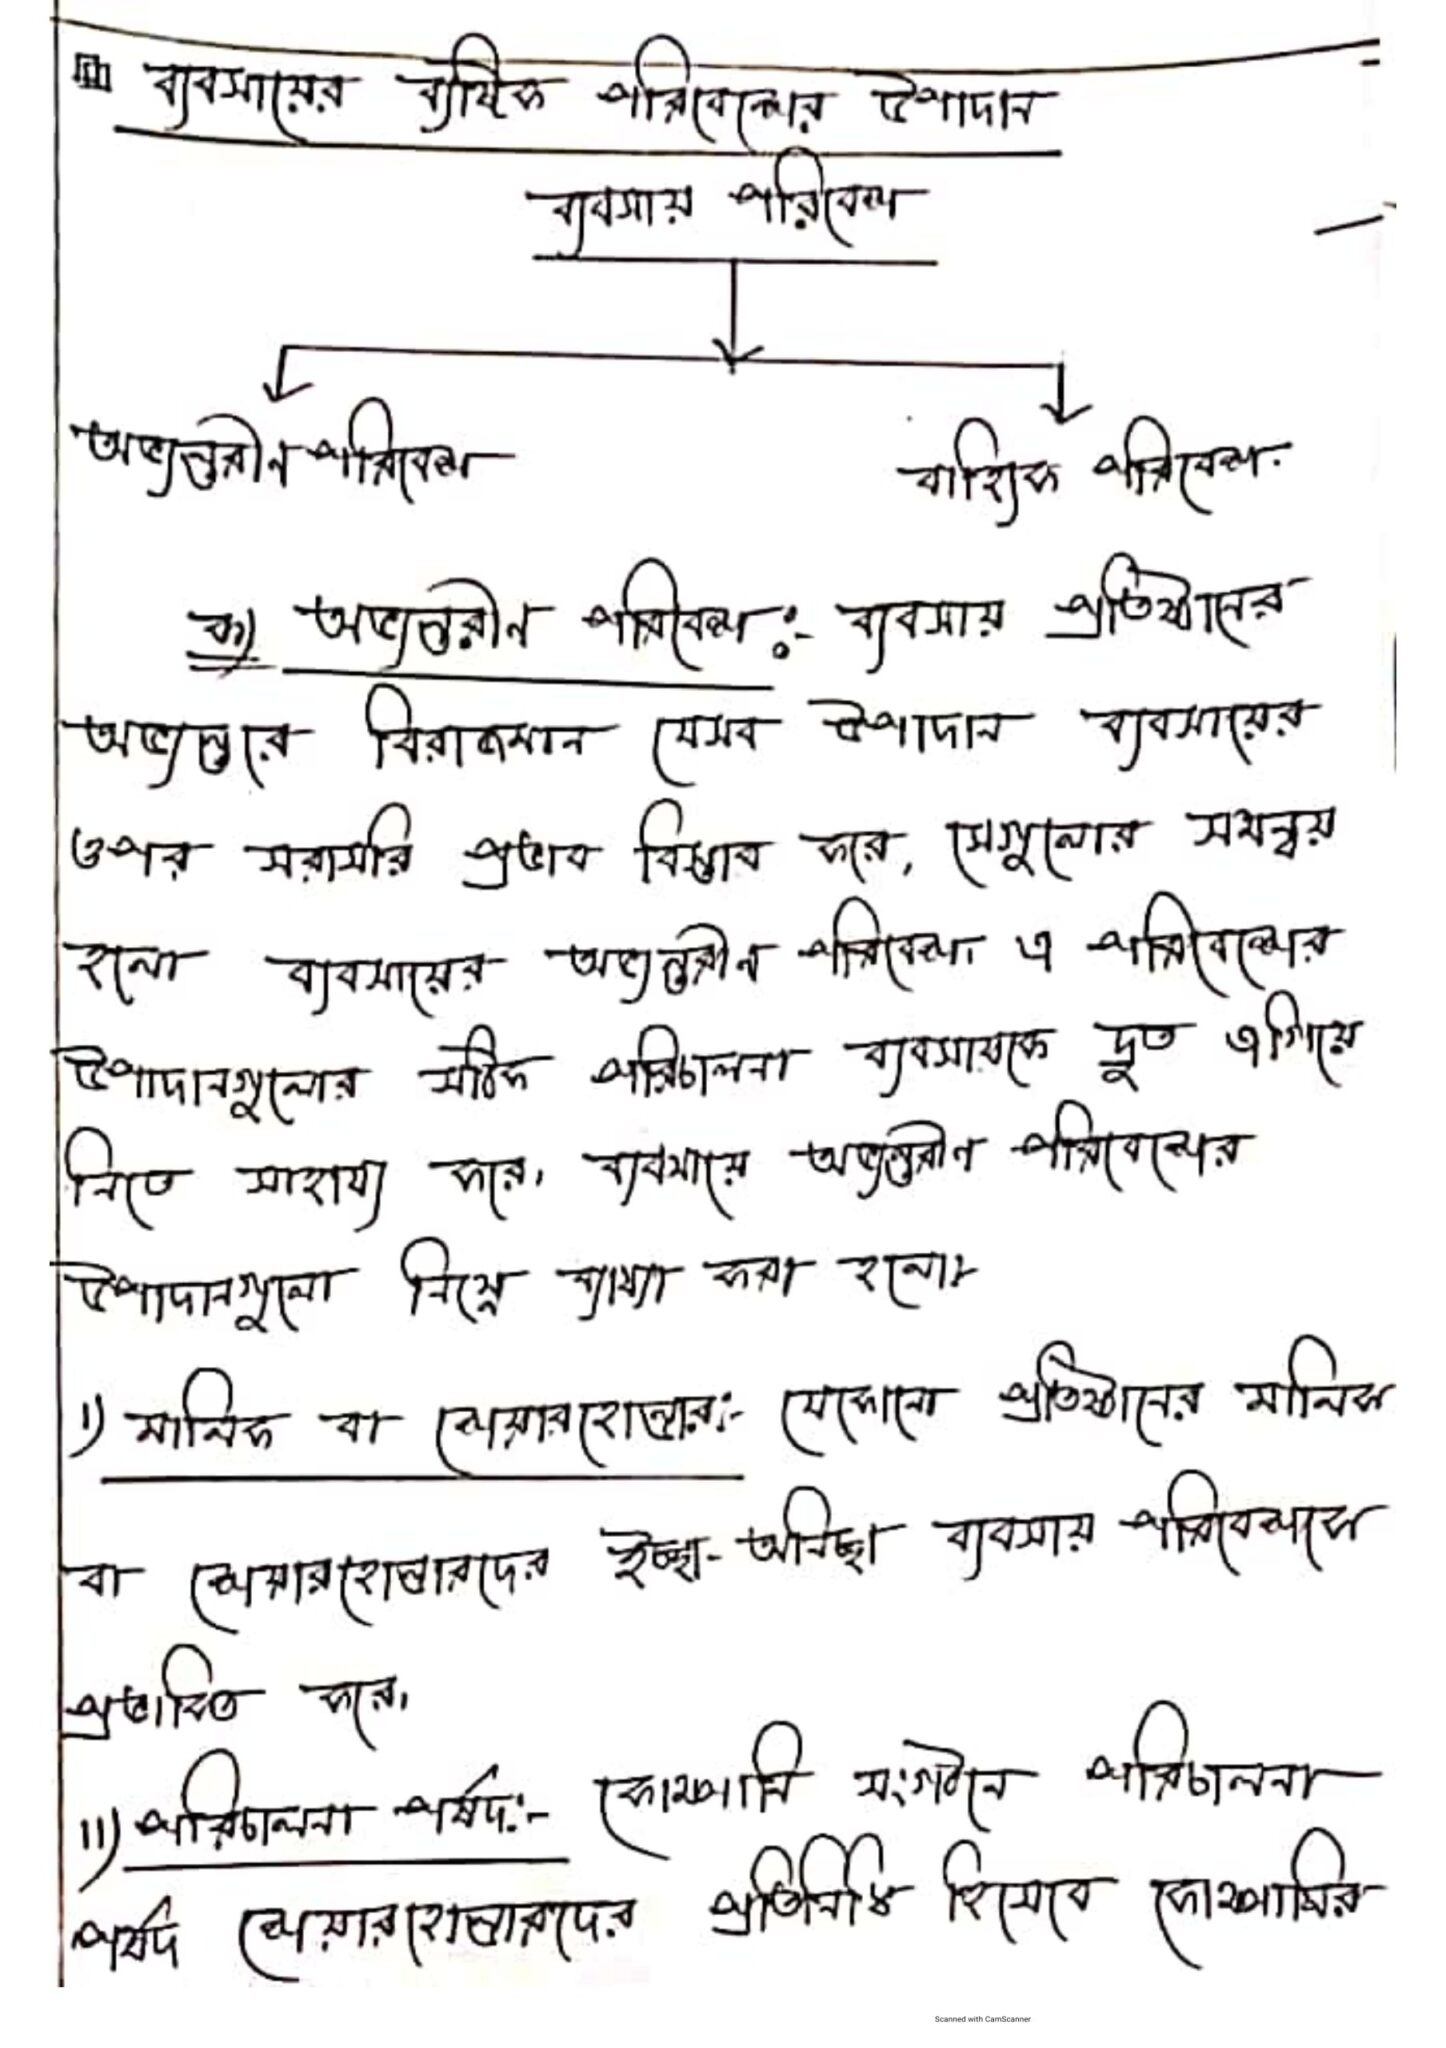 ব্যবসায়ের ব্যষ্টিক পরিবেশের উপাদান
ব্যবসায় পরিবেশ
অভ্যন্তরীন পরিবেশ
বাহ্যিক পরিবেশ
ক) অভ্যন্তরীন পরিবেশ:- ব্যবসায় প্রতিষ্ঠানের
অভ্যন্তরে বিরাজমান যেসব উপাদান ব্যবসায়ের
ওপর সরাসরি প্রভাব বিস্তার করে, সেগুলোর সমন্বয়
হলো ব্যবসায়ের অভ্যন্তরীন পরিবেশ। এ পরিবেশের
উপাদানগুলোর সঠিক পরিচালনা ব্যবসায়কে দ্রুত এগিয়ে
নিতে সাহায্য করে। ব্যবসায়ে অভ্যন্তরীন পরিবেশের
উপাদানগুলো নিম্নে ব্যাখ্যা করা হলো।
i) মালিক বা শেয়ারহোল্ডার:- যেকোনো প্রতিষ্ঠানের মালিক
বা শেয়ারহোল্ডারদের ইচ্ছা-অনিচ্ছা ব্যবসায় পরিবেশকে
প্রভাবিত করে।
ii) পরিচালনা পর্ষদ:- কোম্পানি সংগঠনে পরিচালনা
পর্ষদ শেয়ারহোল্ডারদের প্রতিনিধি হিসেবে কোম্পানির
Scanned with CamScanner